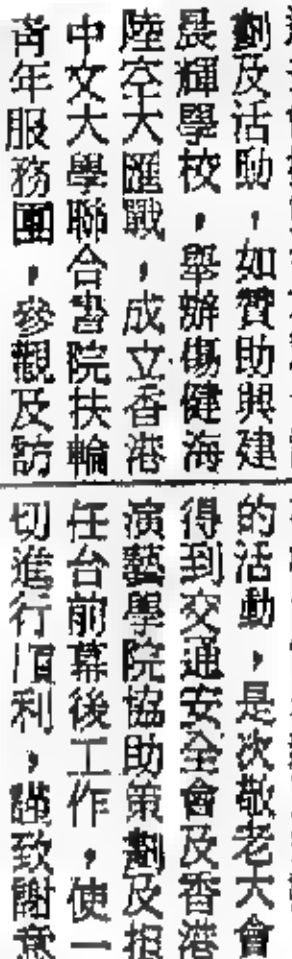 劃及活動，如贊助興建
晨輝學校，舉辦傷健海
陸空大匯戰，成立香港
中文大學聯合書院扶輪
青年服務團，參觀及訪
的活動，是次敬老大會
得到交通安全會及香港
演藝學院協助策劃及担
任台前幕後工作，使一
切進行順利，謹致謝意